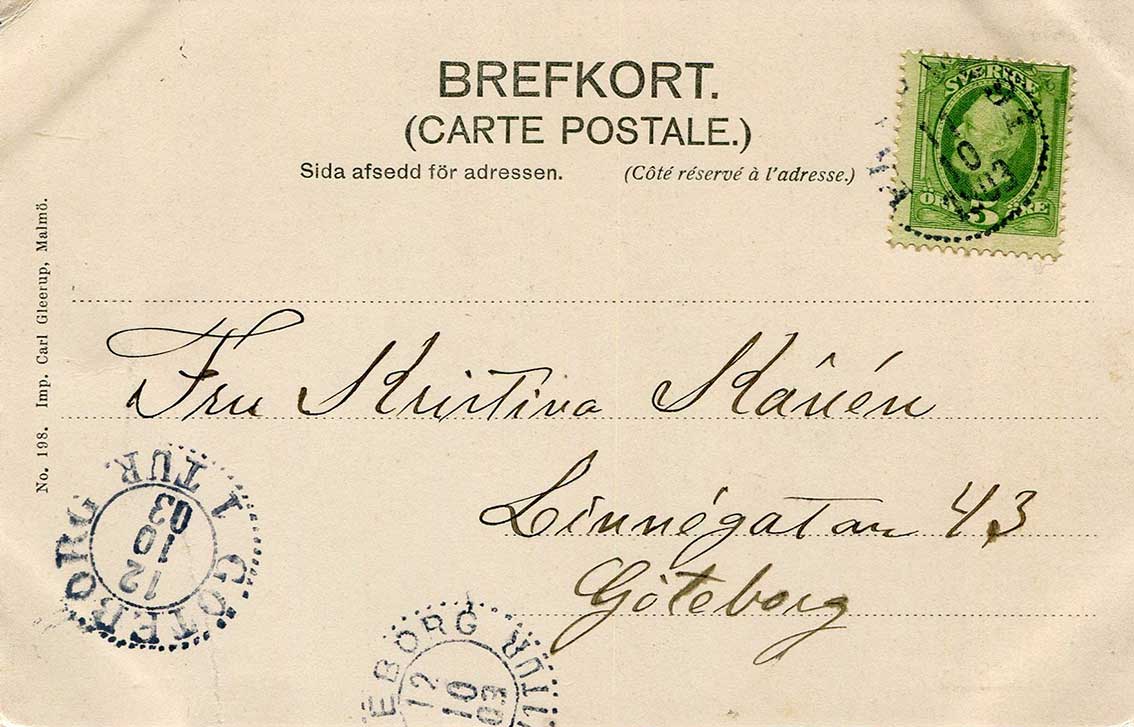 BREFKORT.
(CARTE POSTALE.)
Sida afsedd för adressen. (Côté réservé à l'adresse.)
SVERIGE
5
ÖRE ÖRE
10
03
No. 198. Imp. Carl Gleerup, Malmö.
Fru Kristina
Linnégatan 43
Göteborg
GÖTEBORG 1 TUR
12
10
03
EBORG 1 TUR
12
10
03